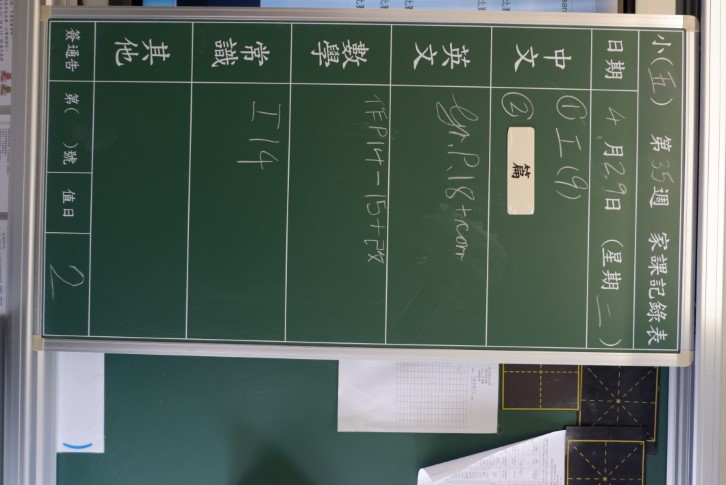 小(五) 第35週 家課記錄表
日期 4月29日 (星期二)
中文 ①工(9)
② 篇
英文 Gr.P.18+corr
數學 作P14-15+改
常識 工14
其他
簽通告 第( )號 值日 2